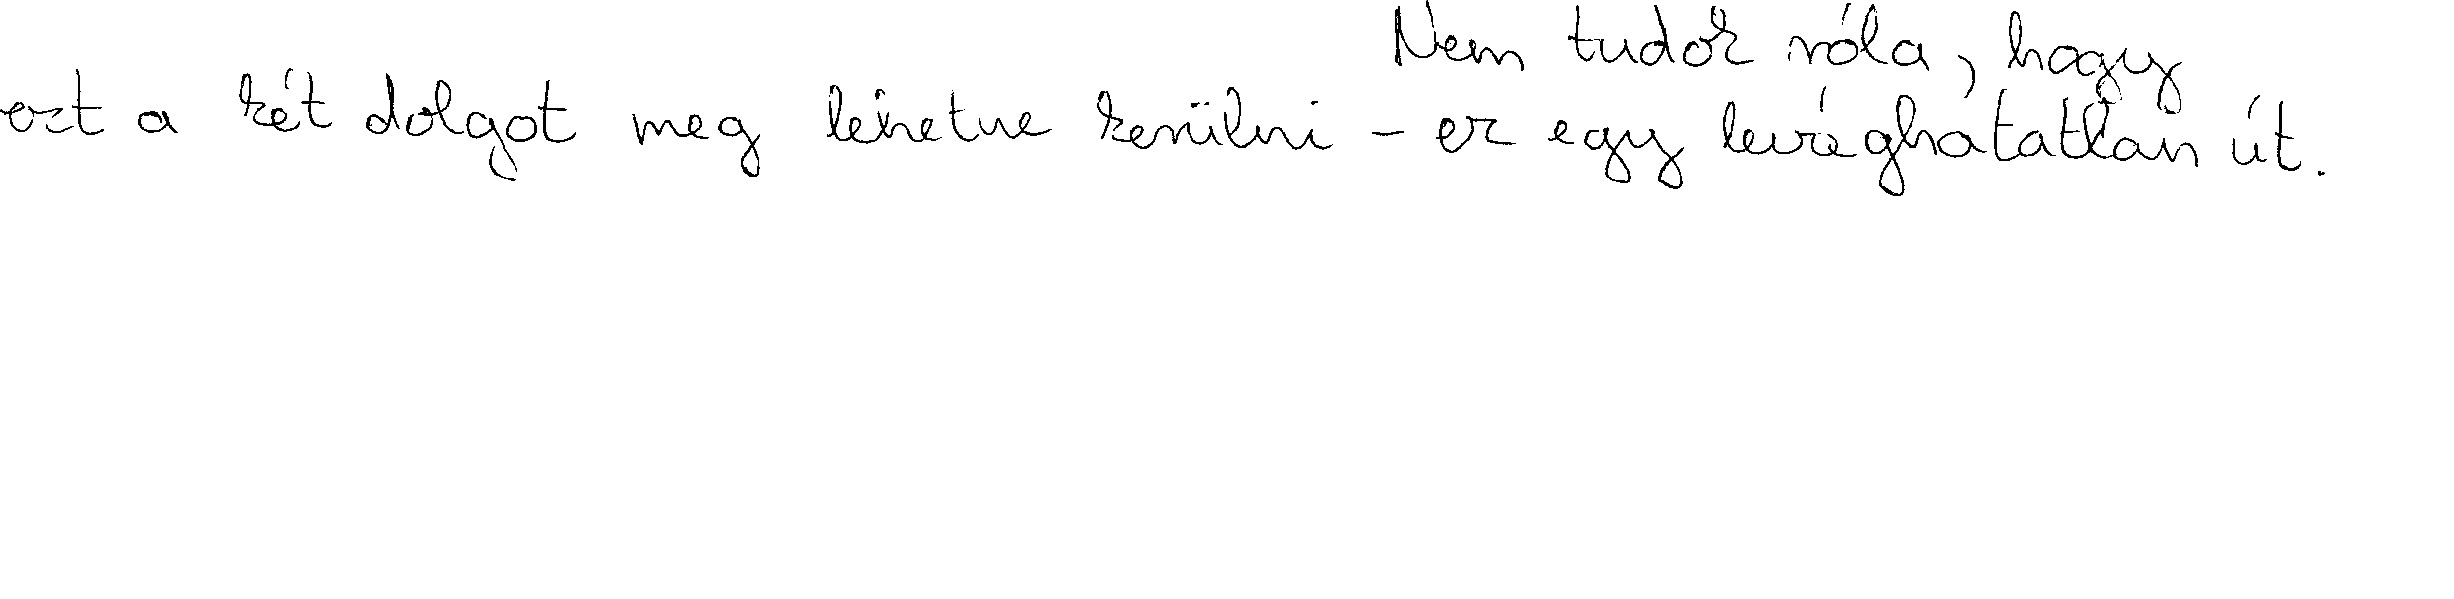 Nem tudok róla, hogy
ezt a két dolgot meg lehetne kerülni – ez egy levághatatlan út.